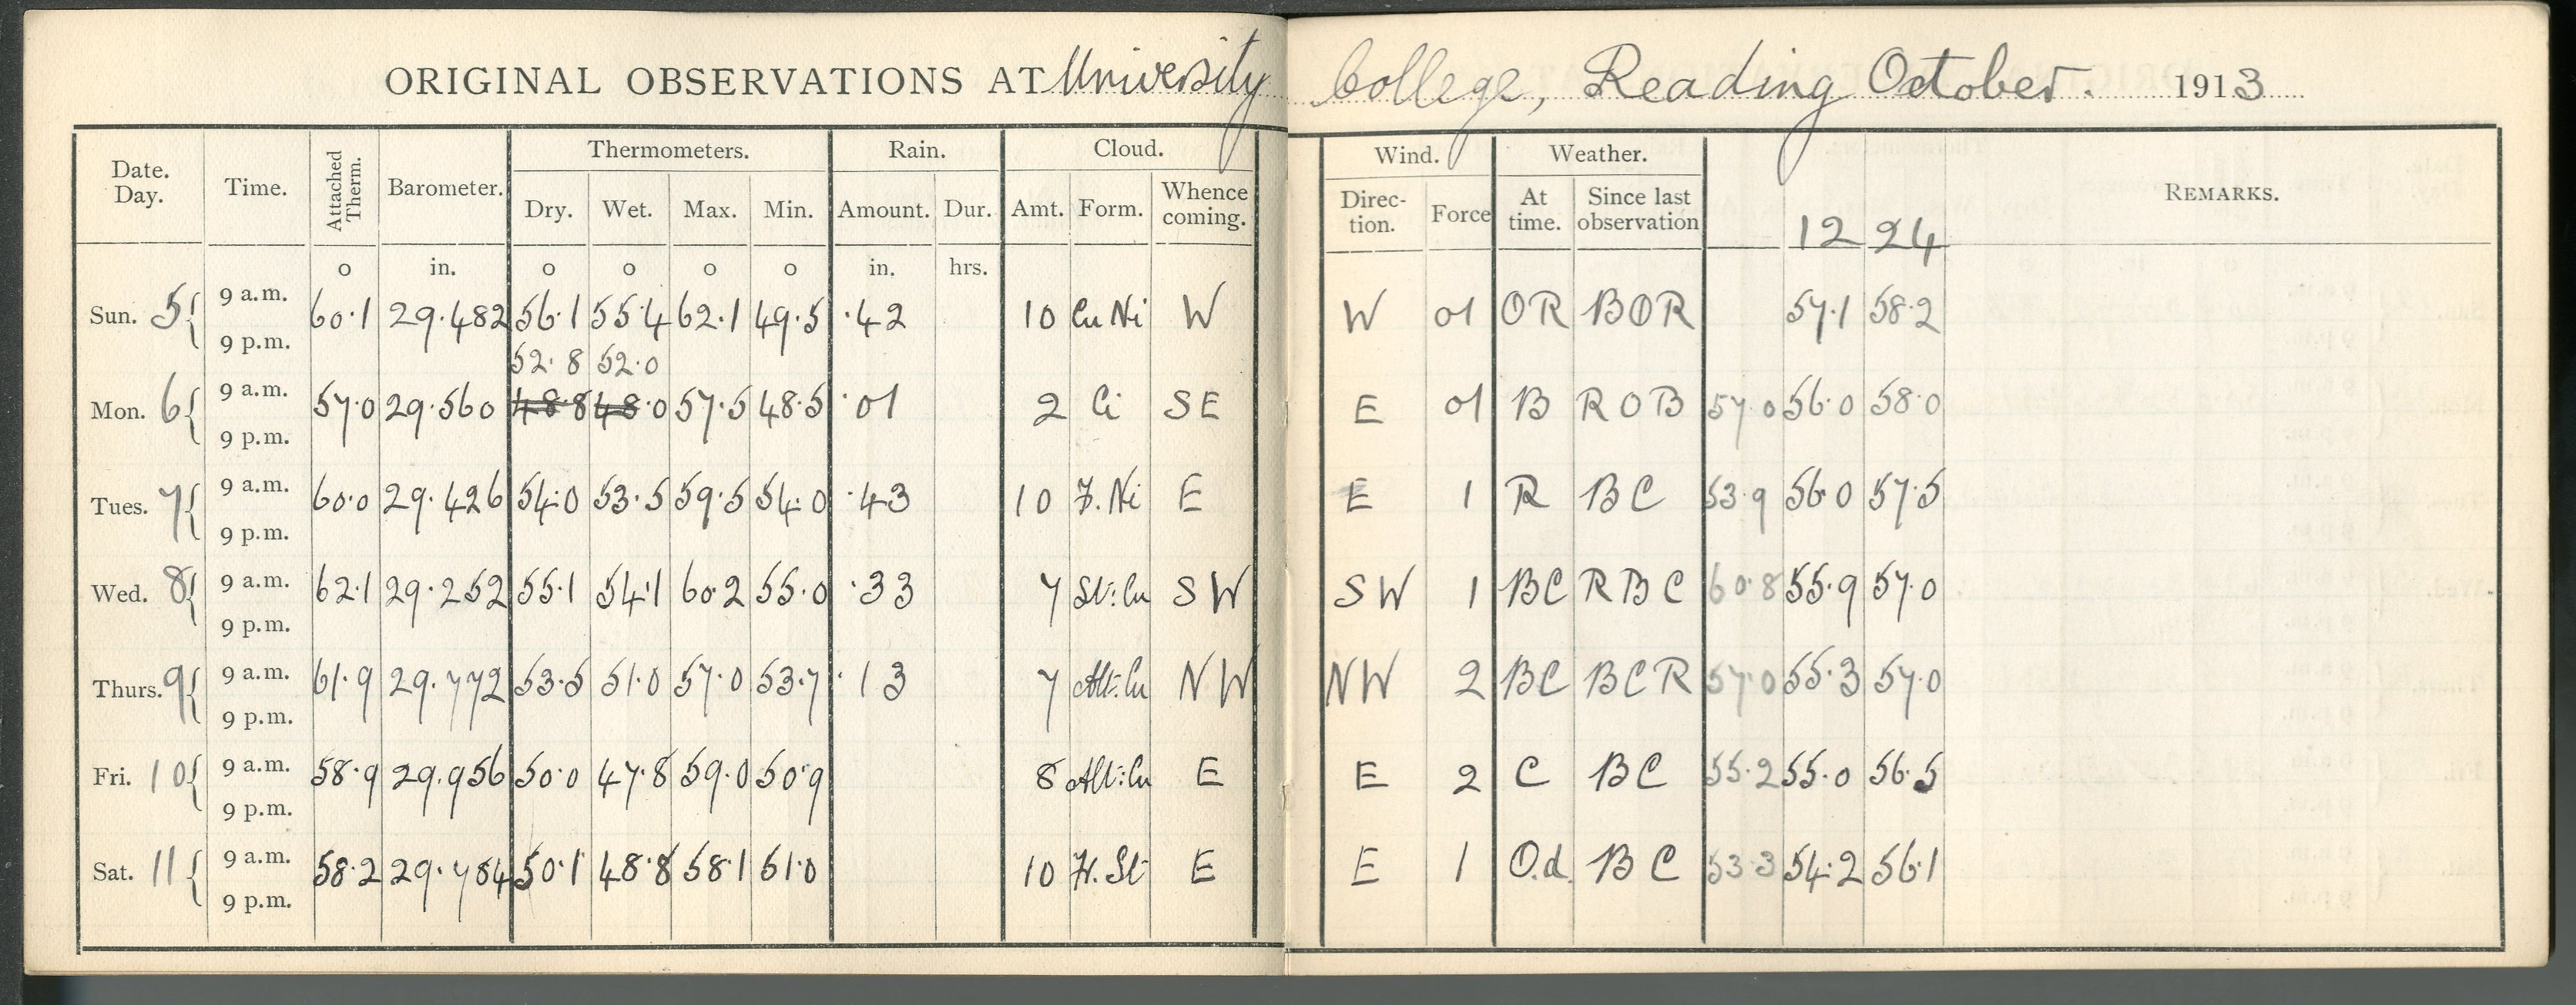 ORIGINAL OBSERVATIONS AT University College, Reading October. 1913
Date. Day. Time. Attached Therm. Barometer. Thermometers. Rain. Cloud. Wind. Weather. REMARKS.
Dry. Wet. Max. Min. Amount. Dur. Amt. Form. Whence coming. Direc-tion. Force At time. Since last observation 12 24
o in. o o o o in. hrs.
Sun. 5 { 9 a.m. 60.1 29.482 56.1 55.4 62.1 49.5 .42 10 Cu Ni W W 01 OR BOR 57.1 58.2
9 p.m.
52.8 52.0
Mon. 6 { 9 a.m. 57.0 29.560 48.8 48.0 57.5 48.5 .01 2 Ci SE E 01 B ROB 57.0 56.0 58.0
9 p.m.
Tues. 7 { 9 a.m. 60.0 29.426 54.0 53.5 59.5 54.0 .43 10 F.Ni E E 1 R BC 53.9 56.0 57.5
9 p.m.
Wed. 8 { 9 a.m. 62.1 29.252 55.1 54.1 60.2 55.0 .33 7 St:Cu SW SW 1 BC RBC 60.8 55.9 57.0
9 p.m.
Thurs. 9 { 9 a.m. 61.9 29.772 53.5 51.0 57.0 53.7 .13 7 Alt:Cu NW NW 2 BC BCR 57.0 55.3 57.0
9 p.m.
Fri. 10 { 9 a.m. 58.9 29.956 50.0 47.8 59.0 50.9 8 Alt:Cu E E 2 C BC 55.2 55.0 56.5
9 p.m.
Sat. 11 { 9 a.m. 58.2 29.784 50.1 48.8 58.1 51.0 10 F.St E E 1 O.d. BC 53.3 54.2 56.1
9 p.m.